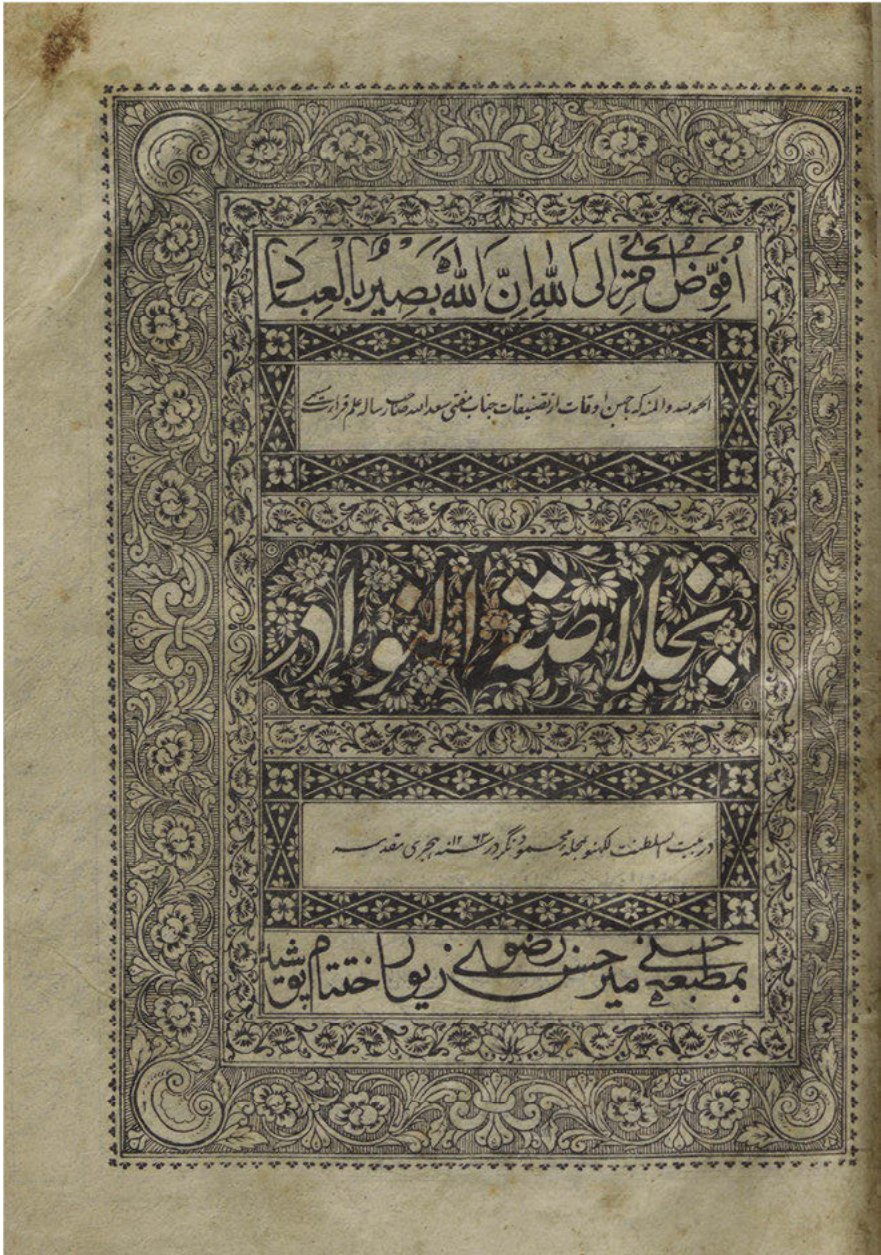 اُفَوِّضُ اَمْرِیْ اِلَی اللهِ اِنَّ اللهَ بَصِیْرٌ بِالْعِبَادِ
الحمد لله والمنه که باحسن اوقات از تصنیفات جناب مفتی سعد الله صاحب رساله علم قرارت مسمی
بخلاصة النوادر
در بیت السلطنت لکهنو بمحله محمود نگر در سنه ۱۲۶۳ هجری مقدسه
بمطبعه حسنی میر حسن رضوی زیور اختتام پوشید